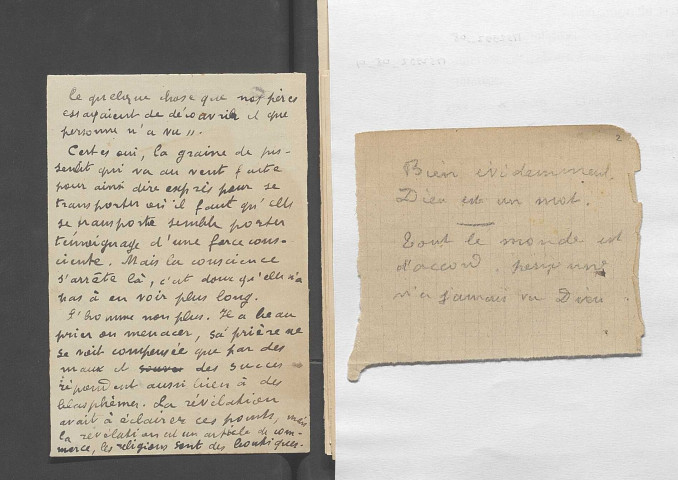 ce quelque chose que nos pères
essayaient de découvrir et que
personne n'a vu ".
Certes oui, la graine de pis-
senlit qui va au vent faite
pour ainsi dire exprès pour se
transporter où il faut qu'elle
se transporte semble porter
témoignage d'une force cons-
ciente. Mais la conscience
s'arrête là, c'est donc qu'elle n'a
pas à en voir plus long.
L'homme non plus. Il a beau
prier ou menacer, sa prière ne
se voit compensée que par des
maux et des succès
répondent aussi bien à des
blasphèmes. La révélation
avait à éclairer ces points, mais
la révélation est un article de com-
merce, les religions sont des boutiques.
2
Bien évidemment.
Dieu est un mot.
Tout le monde est
d'accord. personne
n'a jamais vu Dieu.